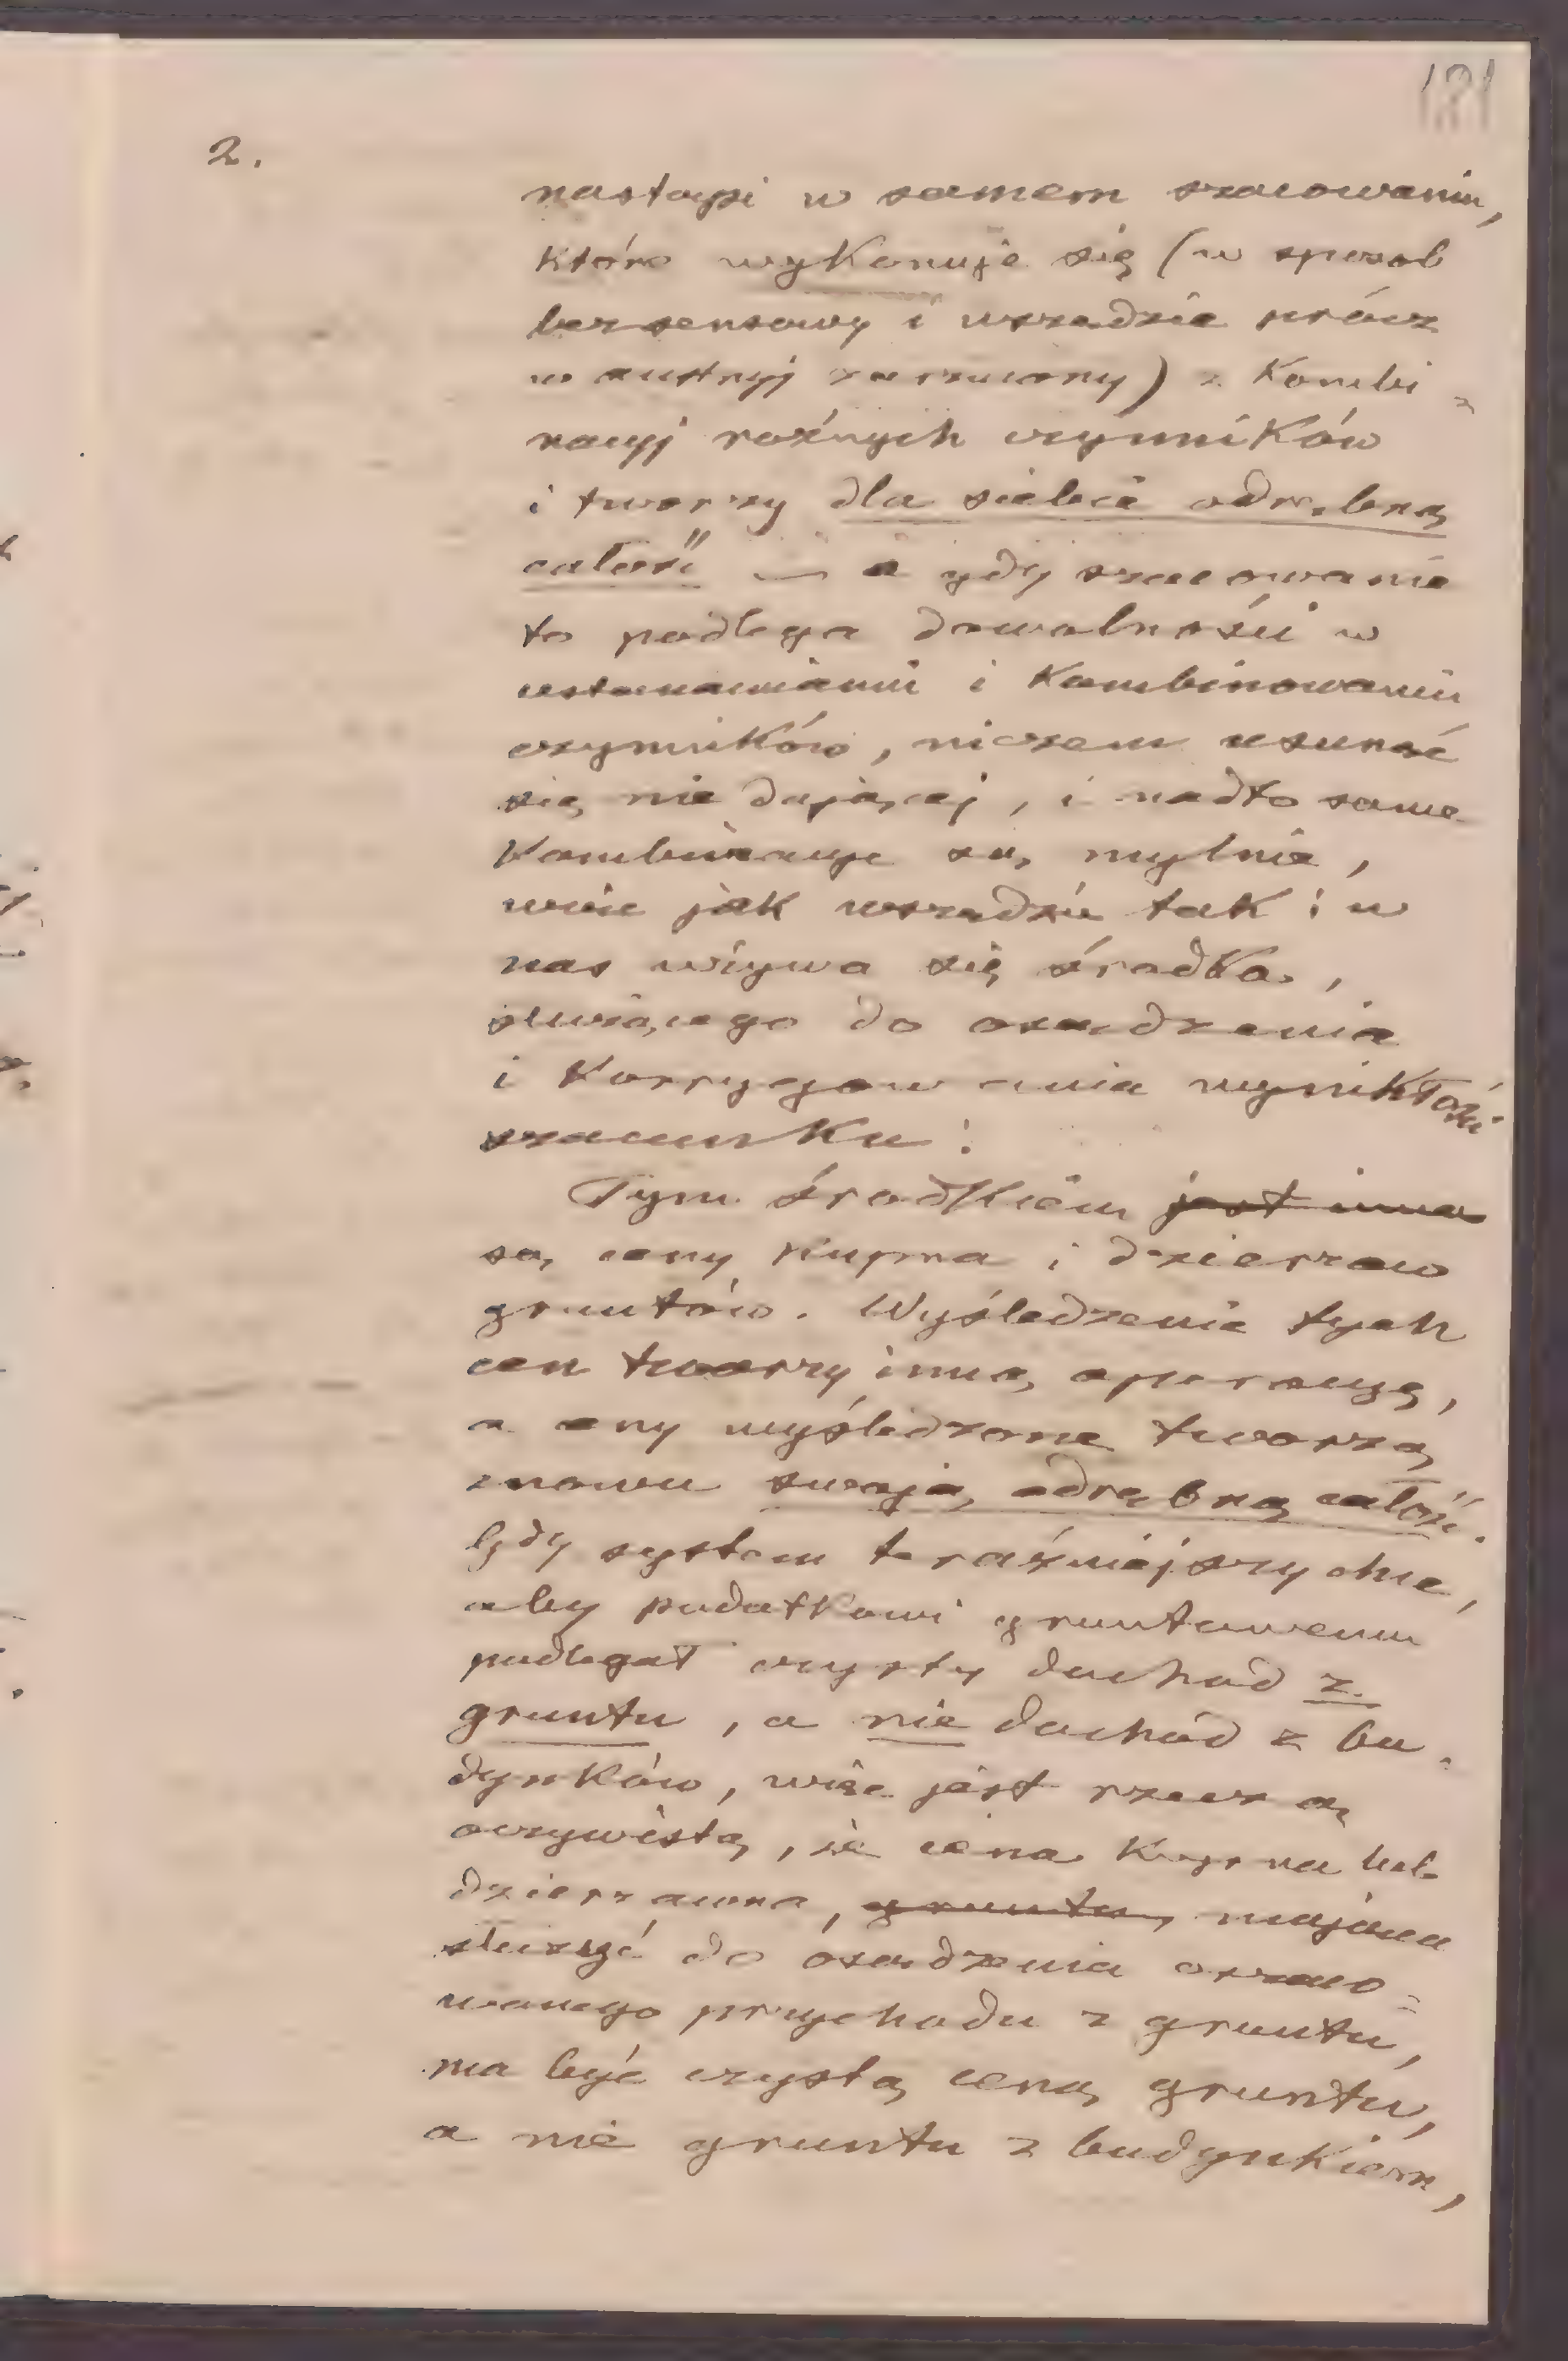 181
2.
nastąpi w samem szacowaniu,
które wykonuje się (w sposob
bezsensowy i wszędzie prócz
w austryj zarzucony) z Kombi=
nacyj rożnych czynników
i tworzy dla siebie odrębną
całość — a gdy szacowanie
to podlega dowolności w
ustanawianiu i Kombinowaniu
czynników, niczem usunąć
się nie dającej, i nadto same
Kombinacye są mylnie,
więc jak wszędzie tak i u
nas używa się środka,
służącego do osądzenia
i Korrygowania wynikłości
szacunku:
Tym środkiem jest inna
są ceny Kupna i dzierzaw
gruntów. Wyśledzenie tych
cen tworzy inną operacyą,
a ceny wyśledzone tworzą
znowu swoją odrębną całość.
Gdy system teraźniejszy chce,
aby podatkowi gruntowemu
podlegał czysty dochod z
gruntu, a nie dochód z bu=
dynków, więc jest rzeczą
oczywistą, że cena Kupna lub
dzierzawna, gruntu, mająca
służyć do osądzenia oszaco=
wanego przychodu z gruntu,
ma być czystą ceną gruntu,
a nie gruntu z budynkiem,